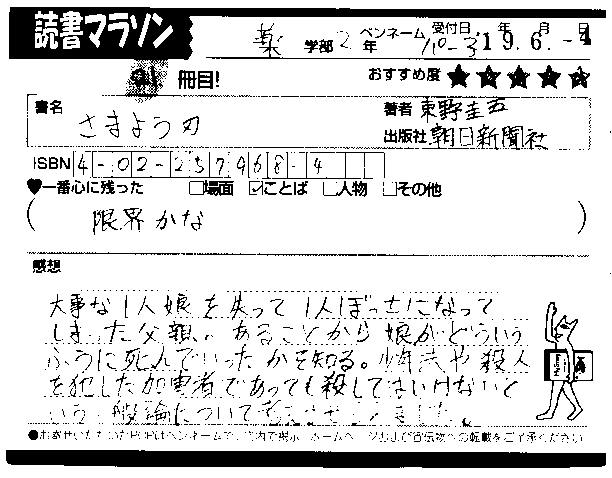 読書マラソン
薬 学部 2 年 ペンネーム パロ-ろ 受付日 19年 6月 -4日
冊目!
おすすめ度 ★★★★★
書名 さまよう刃
著者 東野圭吾
出版社 朝日新聞社
ISBN 4-02-257968-4
♥一番心に残った □場面 ☑ことば □人物 □その他
( 限界かな )
感想
大事な1人娘を失って1人ぼっちになって
しまった父親。あることから娘がどういう
ふうに死んでいったかを知る。少年法や殺人
を犯した加害者であっても殺してはいけないと
いう一般論について考えさせられました。
●お寄せいただいたPOPはペンネームで、店内で掲示、ホームページおよび宣伝物への転載をご了承ください